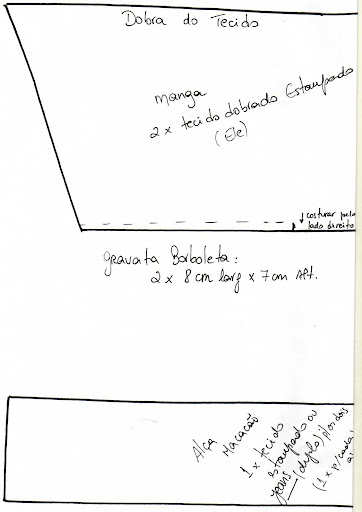 Dobra do Tecido
manga
2 x tecido dobrado Estampado
(Ele)
costurar pelo
lado direito
gravata Borboleta:
2 x 8 cm larg x 7 cm Alt.
Alça Macacão
1 x tecido
estampado ou
jeans (duplo)
(1 x p/cada